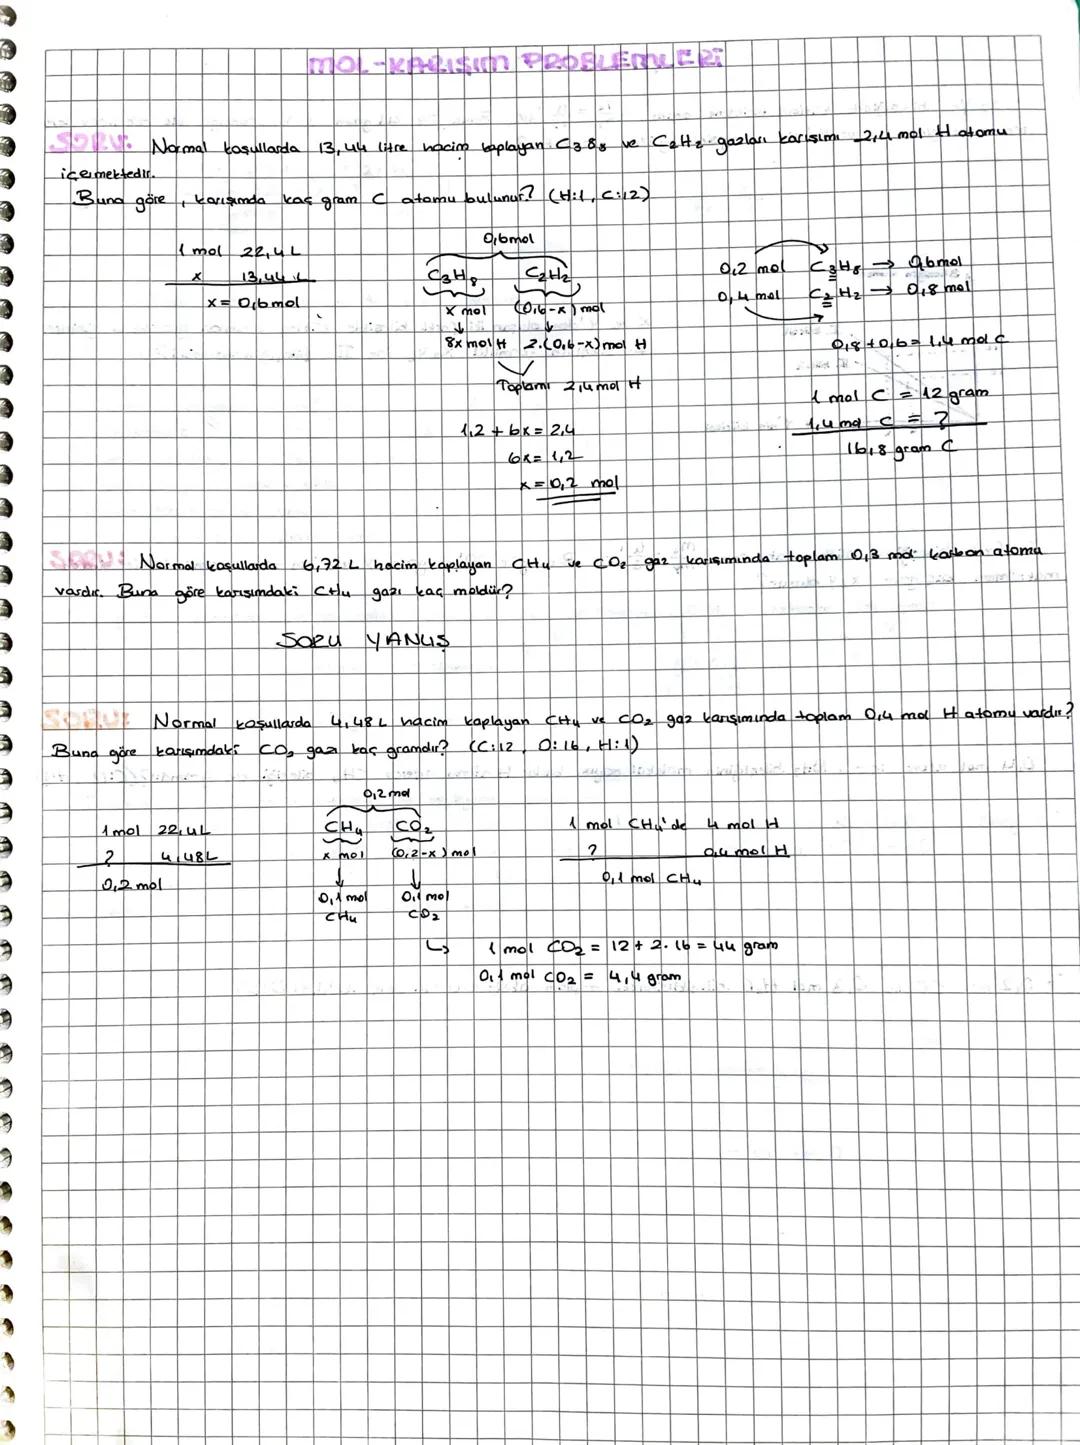 MOL-KARIŞIM PROBLEMLERİ
SORU: Normal koşullarda 13,44 litre hacim kaplayan C38₈ ve C₂H₂ gazları karışımı 2,4 mol H atomu
içermektedir.
Buna göre, karışımda kaç gram C atomu bulunur? (H:1, C:12)
1 mol 22,4 L
x 13,44 L
x = 0,6 mol
0,6 mol
C₃H₈ C₂H₂
x mol (0,6-x) mol
↓ ↓
8x mol H 2.(0,6-x) mol H
Toplamı 2,4 mol H
1,2 + 6x = 2,4
6x = 1,2
x = 0,2 mol
0,2 mol C₃H₈ → 0,6 mol
0,4 mol C₂H₂ → 0,8 mol
0,8 + 0,6 = 1,4 mol C
1 mol C = 12 gram
1,4 mol C = ?
16,8 gram C
SORU: Normal koşullarda 6,72 L hacim kaplayan CH₄ ve CO₂ gaz karışımında toplam 0,3 mol karbon atomu
vardır. Buna göre karışımdaki CH₄ gazı kaç moldür?
SORU YANLIŞ
SORU: Normal koşullarda 4,48 L hacim kaplayan CH₄ ve CO₂ gaz karışımında toplam 0,4 mol H atomu vardır?
Buna göre karışımdaki CO₂ gazı kaç gramdır? (C:12, O:16, H:1)
1 mol 22,4L
? 4,48L
0,2 mol
0,2 mol
CH₄ CO₂
x mol (0,2-x) mol
↓ ↓
0,1 mol 0,1 mol
CH₄ CO₂
1 mol CH₄'de 4 mol H
? 0,4 mol H
0,1 mol CH₄
↳ 1 mol CO₂ = 12 + 2.16 = 44 gram
0,1 mol CO₂ = 4,4 gram